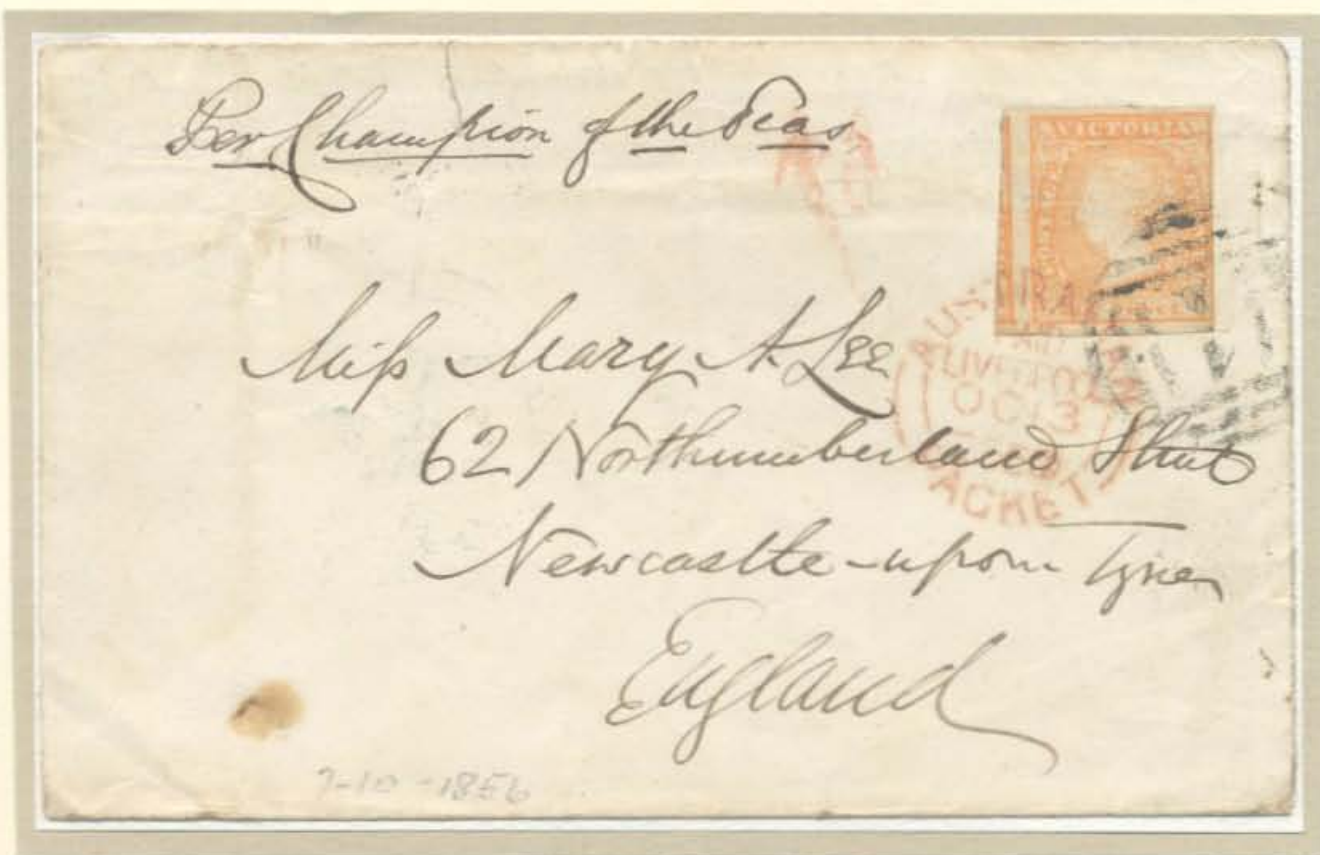 Per Champion of the Seas
VICTORIA
POSTAGE
AUSTRALIAN
PAID
LIVERPOOL
OC 13
PACKET
Miss Mary A. Lee
62 Northumberland Street
Newcastle-upon Tyne
England
-10-1856